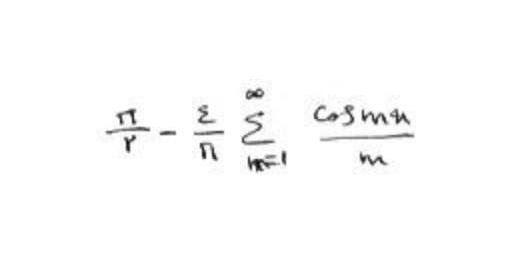 π/۲ - ٤/π ∑_{m=1}^{∞} cos mx / m